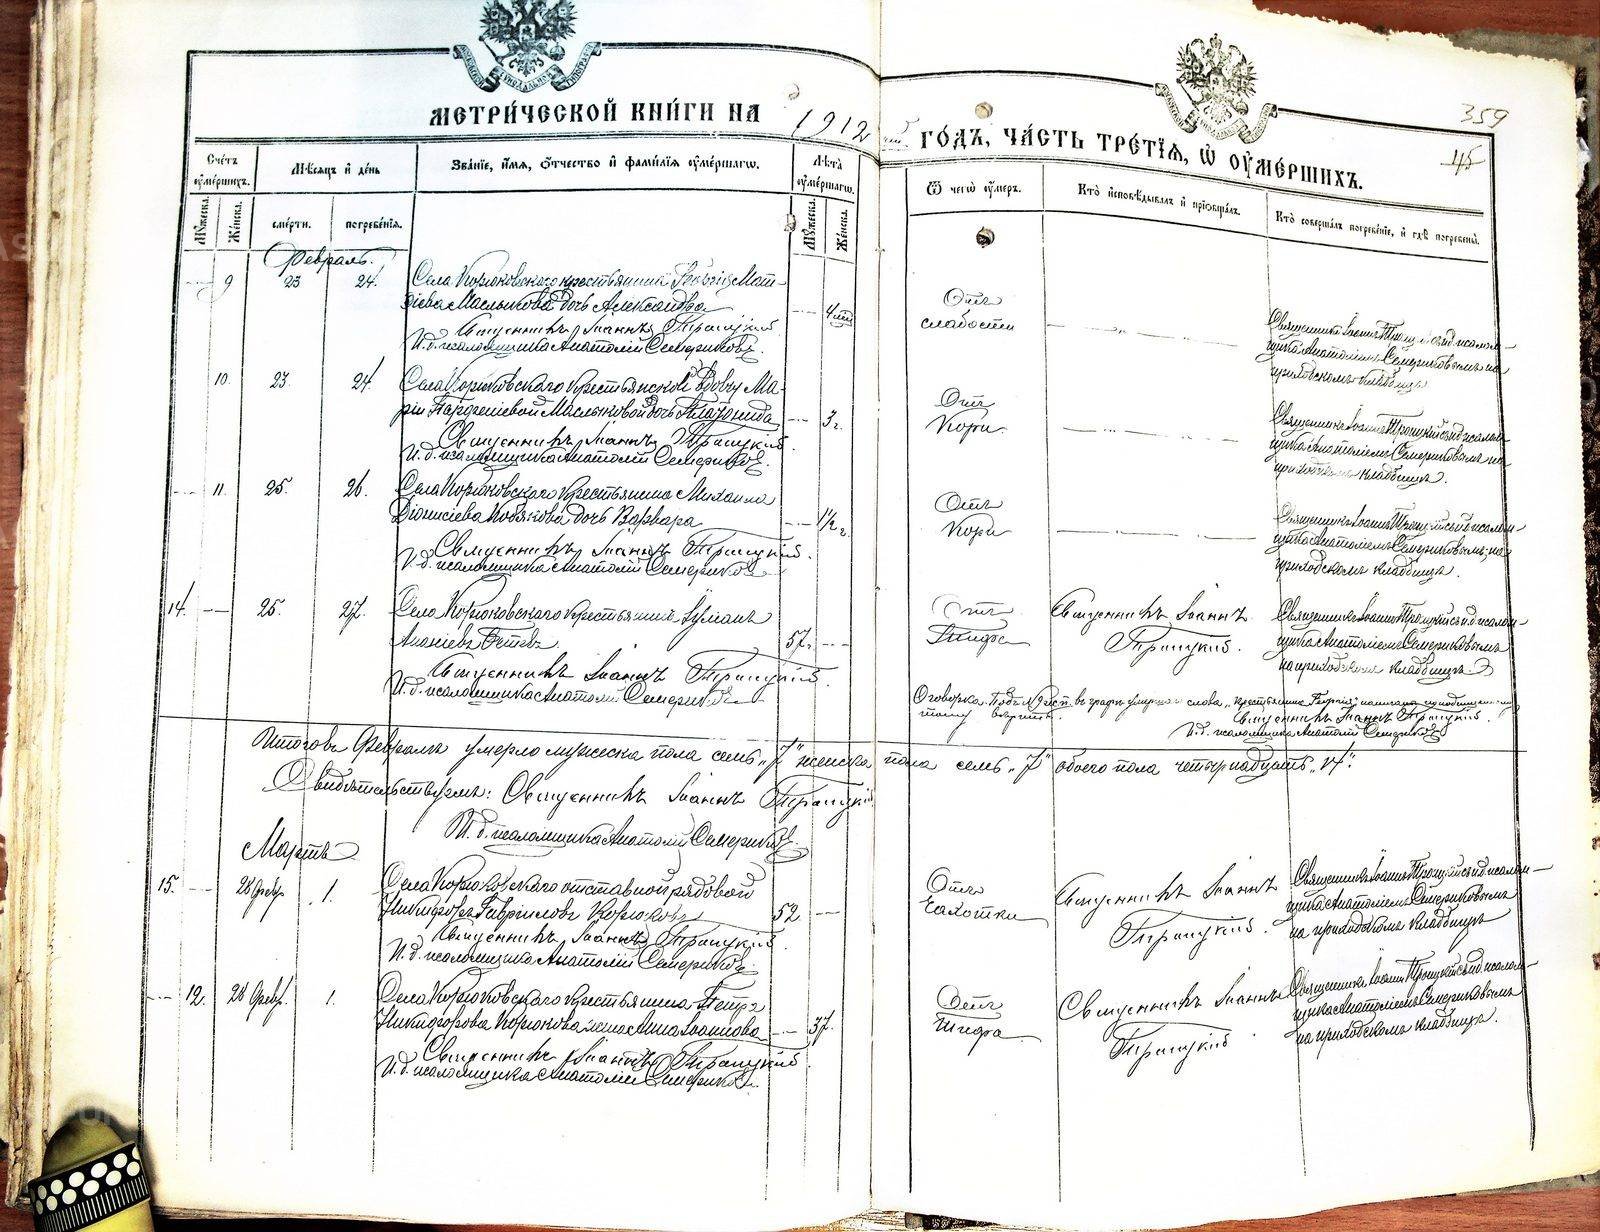 МЕТРИ́ЧЕСКОЙ КНИ́ГИ НА 1912 ГО́ДЪ, ЧА́СТЬ ТРЕ́ТЇЯ, Ѡ҆ ОУ҆МЕ́РШИХЪ.
359
45
Сче́тъ оу҆ме́ршихъ.
Мѣ́сяцъ и҆ де́нь
Зва́нїе, и҆́мя, ѻ҆́тчество и҆ фами́лїя оу҆ме́ршагѡ.
Лѣ́та оу҆ме́ршагѡ.
Ѿ чегѡ̀ оу҆́меръ.
Кто̀ и҆сповѣ́дывалъ и҆ прїѡбща́лъ.
Кто̀ соверша́лъ погребе́нїе, и҆ гдѣ̀ погребены̀.
Мꙋ́жеска.
Же́нска.
сме́рти.
погребе́нїя.
Мꙋ́жеска.
Же́нска.
Февраль.
9 23 24. Села Корюковского крестьянина Георгія Мат-
ѳіева Маслыкова дочь Александра
Священникъ Іоаннъ Троицкій
И. д. псаломщика Анатолій Семериковъ.
4
Отъ
слабости
Священникъ Іоаннъ Троицкій и псалом-
щика Анатоліемъ Семериковымъ на
приходскомъ кладбищѣ
10. 23. 24. Села Корюковского крестьянской вдовы Ма-
ріи Парѳеніевой Маслыковой дочь
Священникъ Іоаннъ Троицкій.
И. д. псаломщика Анатолій Семериковъ.
3 г.
Отъ
Кори
Священникъ Іоаннъ Троицкій псалом-
щика Анатоліемъ Семериковымъ на
приходскомъ кладбищѣ.
11. 25. 26. Села Корюковского крестьянина Михаила
Діонисіева Кобякова дочь Варвара
Священникъ Іоаннъ Троицкій.
И. д. псаломщика Анатолій Семериковъ
1½ г.
Отъ
Кори
Священникъ Іоаннъ Троицкій псалом-
щика Анатоліемъ Семериковымъ на
приходскомъ кладбищѣ.
14. 25. 27. Села Корюковского крестьянинъ
Ананіевъ
Священникъ Іоаннъ Троицкій.
И. д. псаломщика Анатолій Семериковъ
57 г.
Отъ
Тифа
Священникъ Іоаннъ
Троицкій.
Священникъ Іоаннъ Троицкій псалом-
щика Анатоліемъ Семериковымъ
на приходскомъ кладбищѣ.
Оговорка. Подъ № 9 въ графѣ умершаго слова „крестьянина Георгія"
тому вѣрить. Священникъ Іоаннъ Троицкій.
И. д. псаломщика Анатолій Семериковъ
Итого въ Февралѣ умерло мужеска пола семь „7" женска пола семь „7" обоего пола четырнадцать „14".
Свидѣтельствуемъ: Священникъ Іоаннъ Троицкій
И. д. псаломщика Анатолій Семериковъ.
Мартъ
15. 28 Февр. 1. Села Корюковского отставной рядовой
Никифоръ Гавріиловъ Корюковъ
Священникъ Іоаннъ Троицкій.
И. д. псаломщика Анатолій Семериковъ
52
Отъ
Чахотки
Священникъ Іоаннъ
Троицкій.
Священникъ Іоаннъ Троицкій псалом-
щика Анатоліемъ Семериковымъ
на приходскомъ кладбищѣ
12. 28 Февр. 1. Села Корюковского крестьянина Петра
Никифорова Корюкова жена Анна Іоаннова
Священникъ Іоаннъ Троицкій.
И. д. псаломщика Анатолій Семериковъ.
37.
Отъ
Тифа
Священникъ Іоаннъ
Троицкій
Священникъ Іоаннъ Троицкій псалом-
щика Анатоліемъ Семериковымъ
на приходскомъ кладбищѣ.